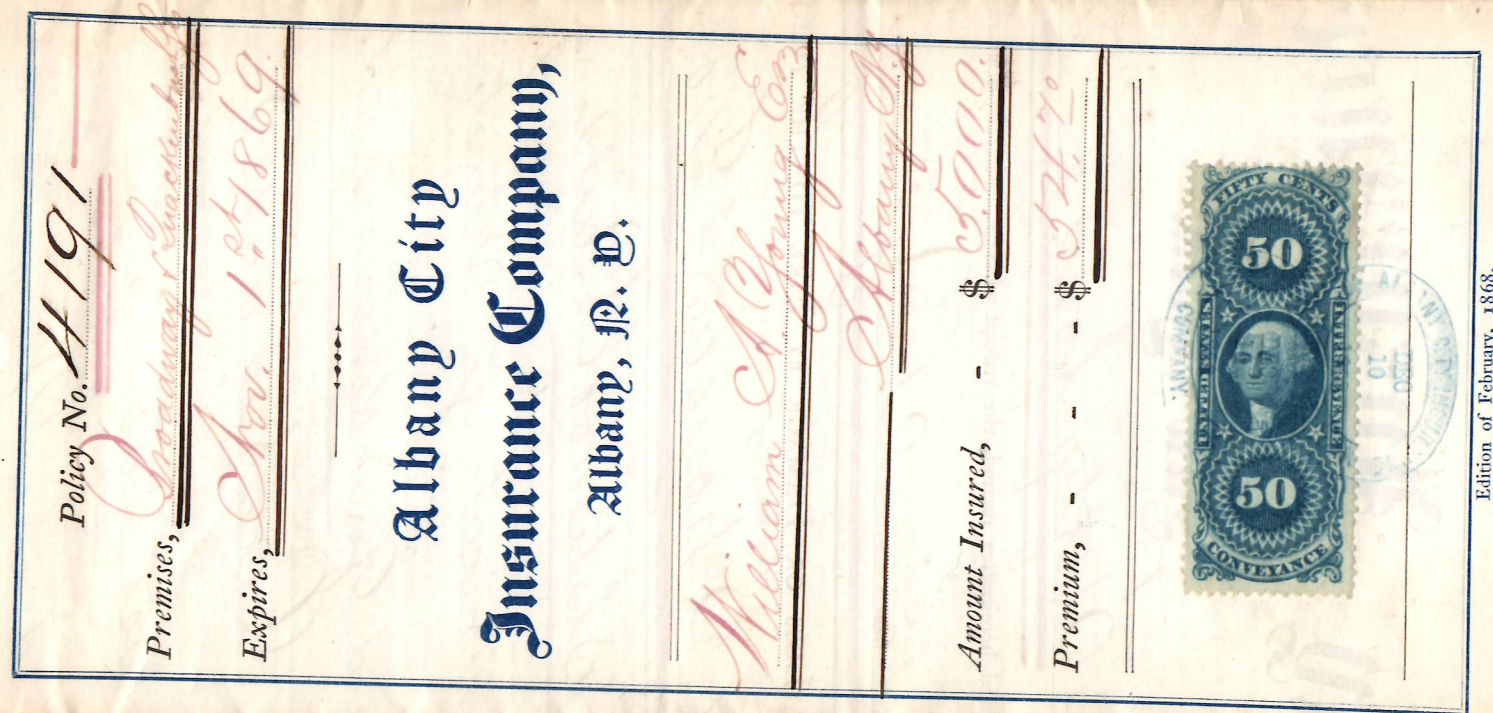 Policy No. 4191
Premises, Broadway & Quackenbush St
Expires, Nov. 1st 1869.
Albany City
Insurance Company,
Albany, N. Y.
William A Young
Albany N.Y
Amount Insured, - $ 5,000.
Premium, - - - - $ 54.70
FIFTY CENTS
50
UNITED STATES
INTER. REVENUE
50
CONVEYANCE
ALBANY CITY INSUR
COMPANY.
DEC
10
Edition of February, 1868.